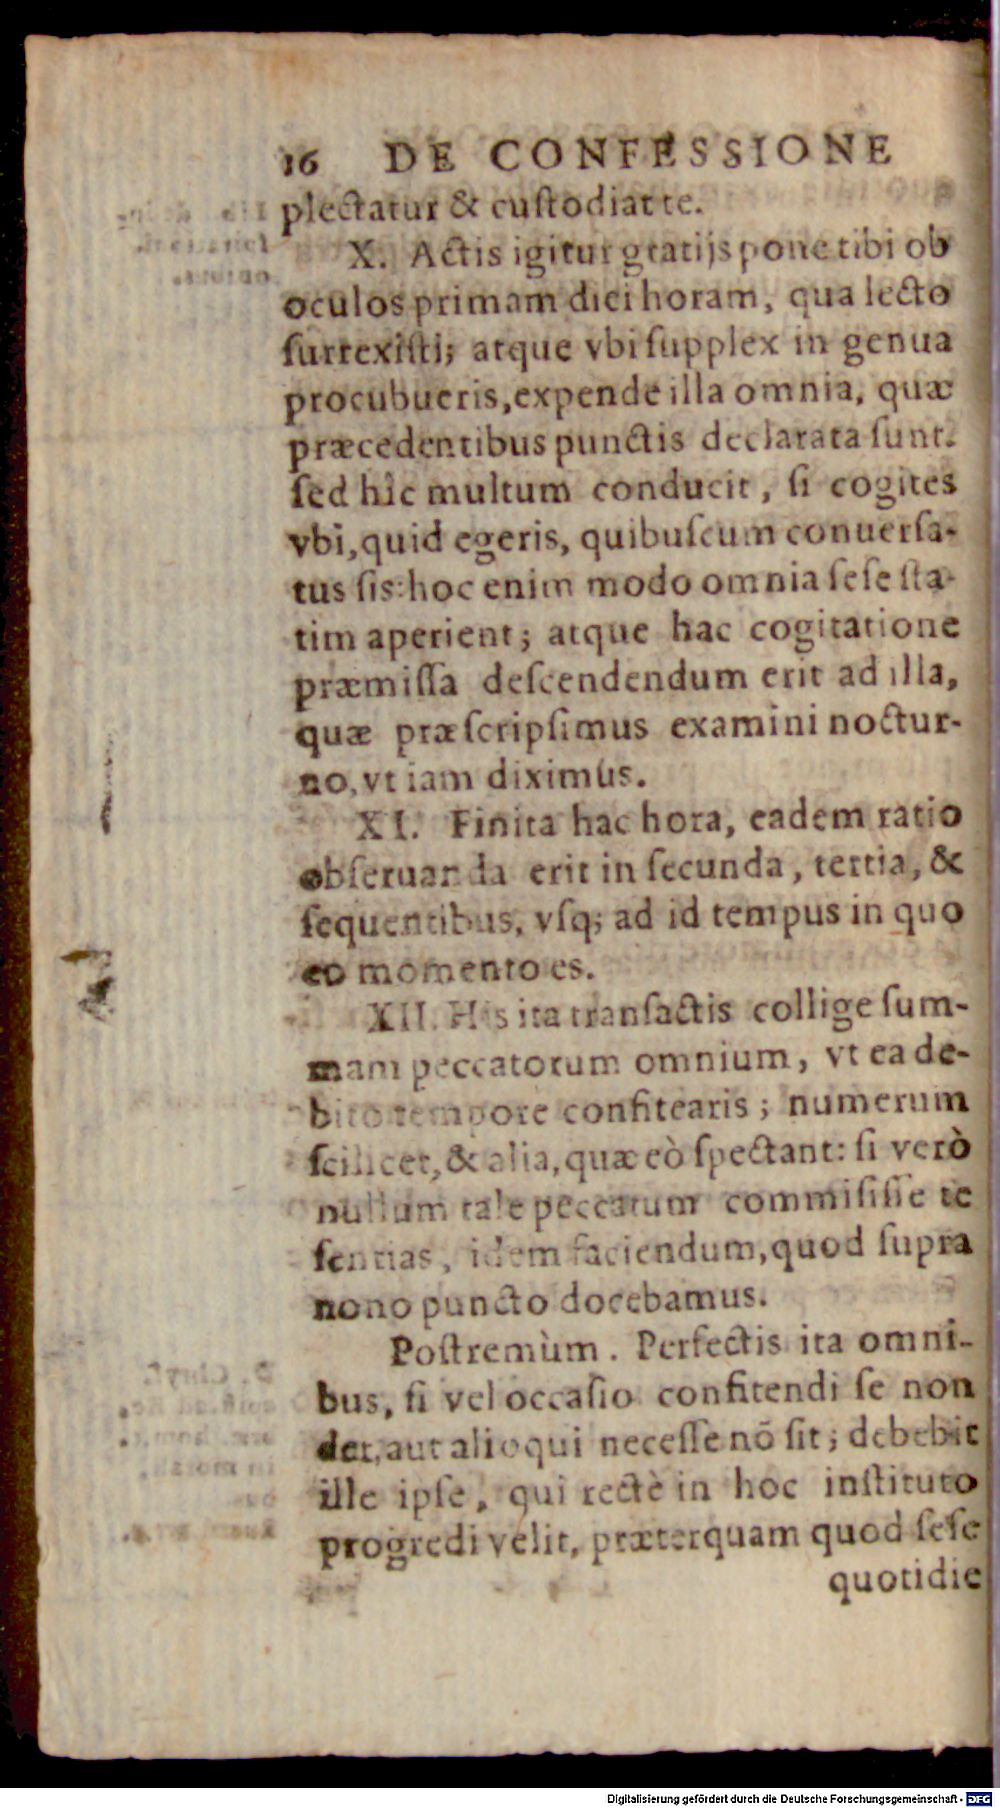 16 DE CONFESSIONE
plectatur & cuſtodiat te.
X. Actis igitur gratijs pone tibi ob
oculos primam diei horam, qua lecto
ſurrexiſti; atque vbi ſupplex in genua
procubueris, expende illa omnia, quæ
præcedentibus punctis declarata ſunt.
ſed hîc multum conducit, ſi cogites
vbi, quid egeris, quibuſcum conuerſa-
tus ſis: hoc enim modo omnia ſeſe ſta-
tim aperient; atque hac cogitatione
præmiſſa deſcendendum erit ad illa,
quæ præſcripſimus examini noctur-
no, vt iam diximus.
XI. Finita hac hora, eadem ratio
obſeruanda erit in ſecunda, tertia, &
ſequentibus, vſq; ad id tempus in quo
eo momento es.
XII. His ita tranſactis collige ſum-
mam peccatorum omnium, vt ea de-
bito tempore confitearis; numerum
ſcilicet, & alia, quæ eò ſpectant: ſi verò
nullum tale peccatum commiſiſſe te
ſentias, idem faciendum, quod ſupra
nono puncto docebamus.
Poſtremùm. Perfectis ita omni-
bus, ſi vel occaſio confitendi ſe non
det, aut alioqui neceſſe nō ſit; debebit
ille ipſe, qui rectè in hoc inſtituto
progredi velit, præterquam quod ſeſe
quotidie
Digitalisierung gefördert durch die Deutsche Forschungsgemeinschaft - DFG